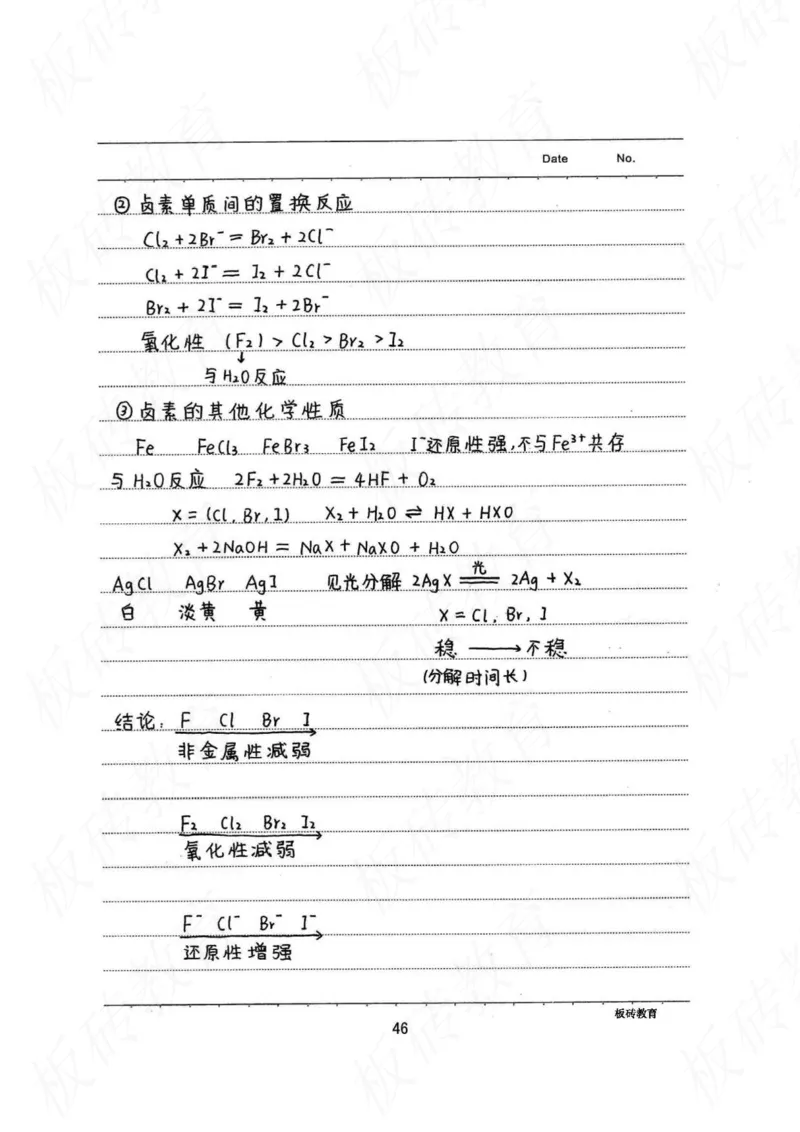 Date No.
② 卤素单质间的置换反应
Cl₂ + 2Br⁻ = Br₂ + 2Cl⁻
Cl₂ + 2I⁻ = I₂ + 2Cl⁻
Br₂ + 2I⁻ = I₂ + 2Br⁻
氧化性 (F₂) > Cl₂ > Br₂ > I₂
↓
与H₂O反应
③ 卤素的其他化学性质
Fe FeCl₃ FeBr₃ FeI₂ I⁻还原性强,不与Fe³⁺共存
与H₂O反应 2F₂ + 2H₂O = 4HF + O₂
X = (Cl, Br, I) X₂ + H₂O ⇌ HX + HXO
X₂ + 2NaOH = NaX + NaXO + H₂O
AgCl AgBr AgI 见光分解 2AgX 光 = 2Ag + X₂
白 淡黄 黄 X = Cl, Br, I
稳 → 不稳
(分解时间长)
结论: F Cl Br I
非金属性减弱
F₂ Cl₂ Br₂ I₂
氧化性减弱
F⁻ Cl⁻ Br⁻ I⁻
还原性增强
板砖教育
46